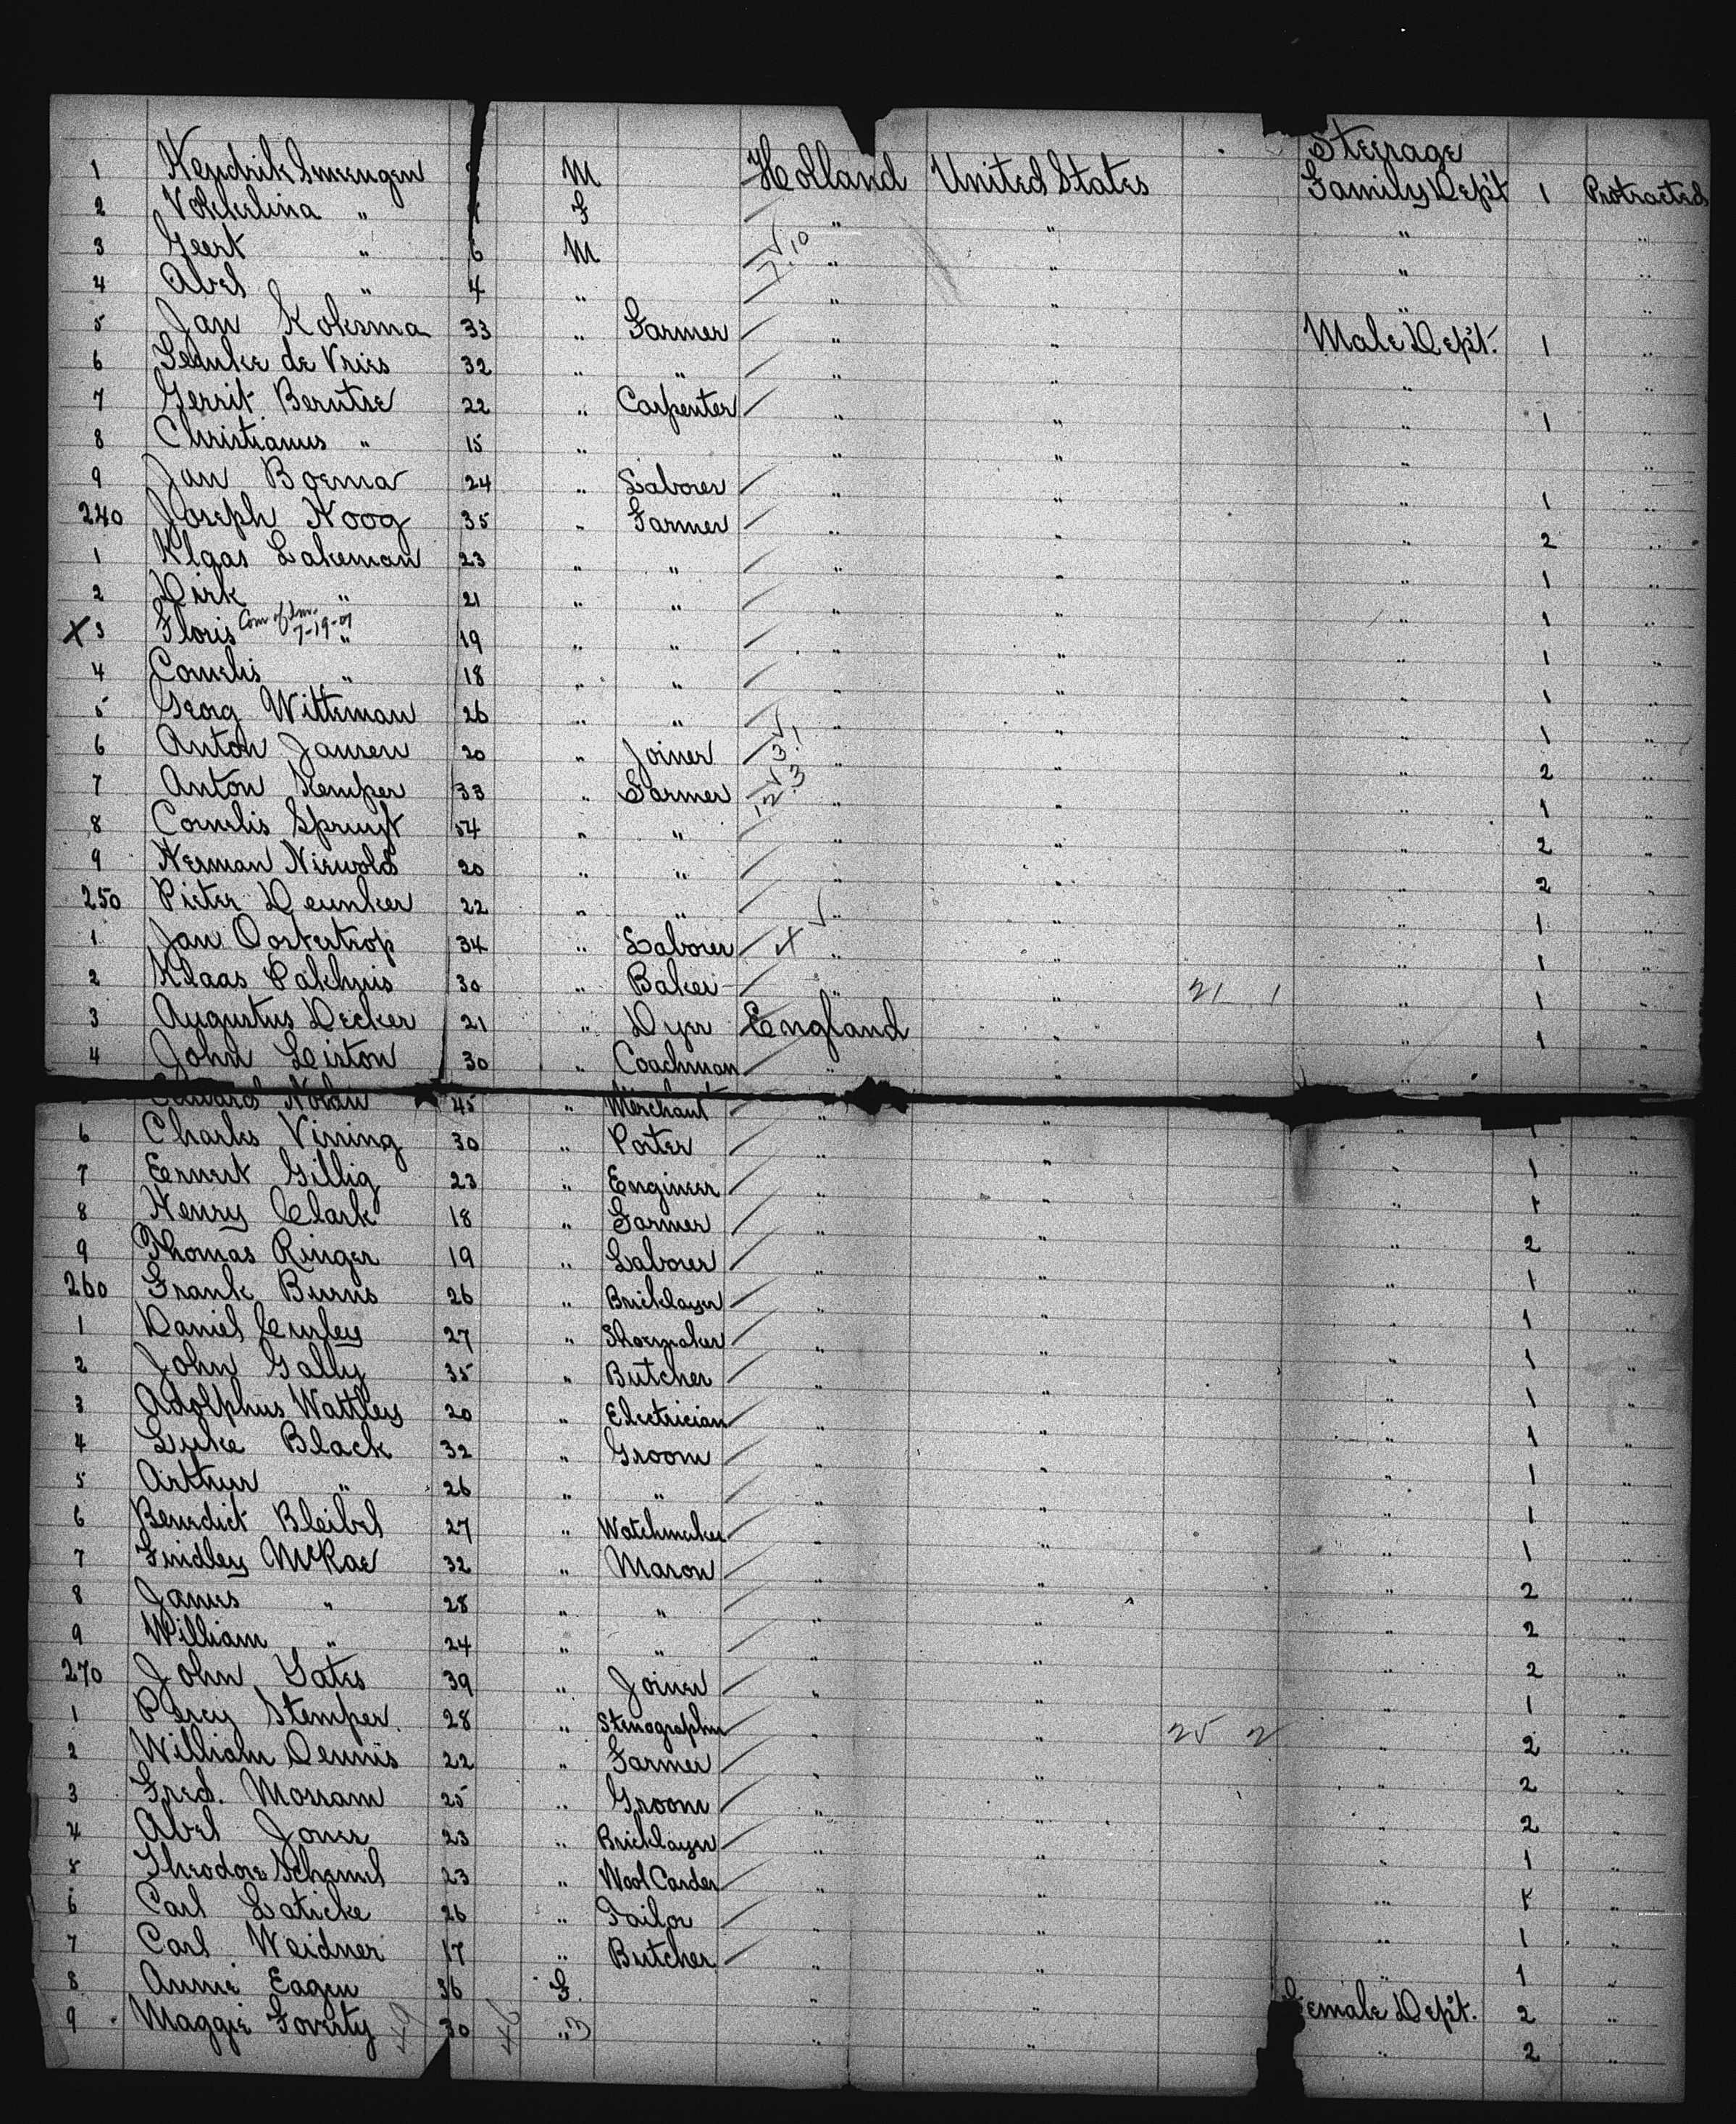 Steerage
1 Hendrik Smeengen M Holland United States Family Dep't 1 Protracted
2 Vokkelina " F " " " "
3 Geert " 6 M " " " "
4 Abel " 4 " " " " "
5 Jan Koksma 33 " Farmer " " Male Dep't. 1 "
6 de Vries 32 " " " " " "
7 Gerrit Berutse 22 " Carpenter " " " 1 "
8 Christianus " 15 " " " " "
9 Jan Boema 24 " Laborer " " " 1 "
240 Joseph Hoog 35 " Farmer " " " 2 "
1 Klaas Lakeman 23 " " " " " 1 "
2 Dirk " 21 " " " " " 1 "
X 3 Floris Com of Im. 7-19-01 " 19 " " " " " 1 "
4 Cornelis " 18 " " " " " 1 "
5 Georg Witteman 26 " " " " " 1 "
6 Anton Jansen 20 " Joiner " " " 2 "
7 Anton Kemper 33 " Farmer " " " 1 "
8 Cornelis Spruyt 54 " " " " " 2 "
9 Herman Niewold 20 " " " " " 2 "
250 Pieter Deunker 22 " " " " " 1 "
1 Jan Oostertrop 34 " Laborer X " " " 1 "
2 Klaas Pakhuis 30 " Baker " " 21 1 " 1 "
3 Augustus Decker 21 " Dyer England " " 1 "
4 John Liston 30 " Coachman " " " "
Edward Nolan 45 " Merchant " " " 1 "
6 Charles Vining 30 " Porter " " " 1 "
7 Ernest Gillig 23 " Engineer " " " 1 "
8 Henry Clark 18 " Farmer " " " 2 "
9 Thomas Ringer 19 " Laborer " " " 1 "
260 Frank Burns 26 " Bricklayer " " " 1 "
1 Daniel Curley 27 " Shoemaker " " " 1 "
2 John Gally 35 " Butcher " " " 1 "
3 Adolphus Wattleys 20 " Electrician " " " 1 "
4 Luke Black 32 " Groom " " " 1 "
5 Arthur " 26 " " " " " 1 "
6 Benedict Bleibel 27 " Watchmaker " " " 1 "
7 Findley McRae 32 " Mason " " " 2 "
8 James " 28 " " " " " 2 "
9 William " 24 " " " " " 2 "
270 John Yates 39 " Joiner " " " 1 "
1 Percy Stemper. 28 " Stenographer " " 25 2 " 2 "
2 William Dennis 22 " Farmer " " " 2 "
3 Fred. Morram 25 " Groom " " " 2 "
4 Abel Jones 23 " Bricklayer " " " 1 "
5 Theodore Schemel 23 " Wool Carder " " " 1 "
6 Carl Laticke 26 " Tailor " " " 1 "
7 Carl Weidner 17 " Butcher " " " 1 "
8 Annie Eagen 36 F. " " Female Dep't. 2 "
9 Maggie Foverty 49 30 46 " 3 " " " 2 "